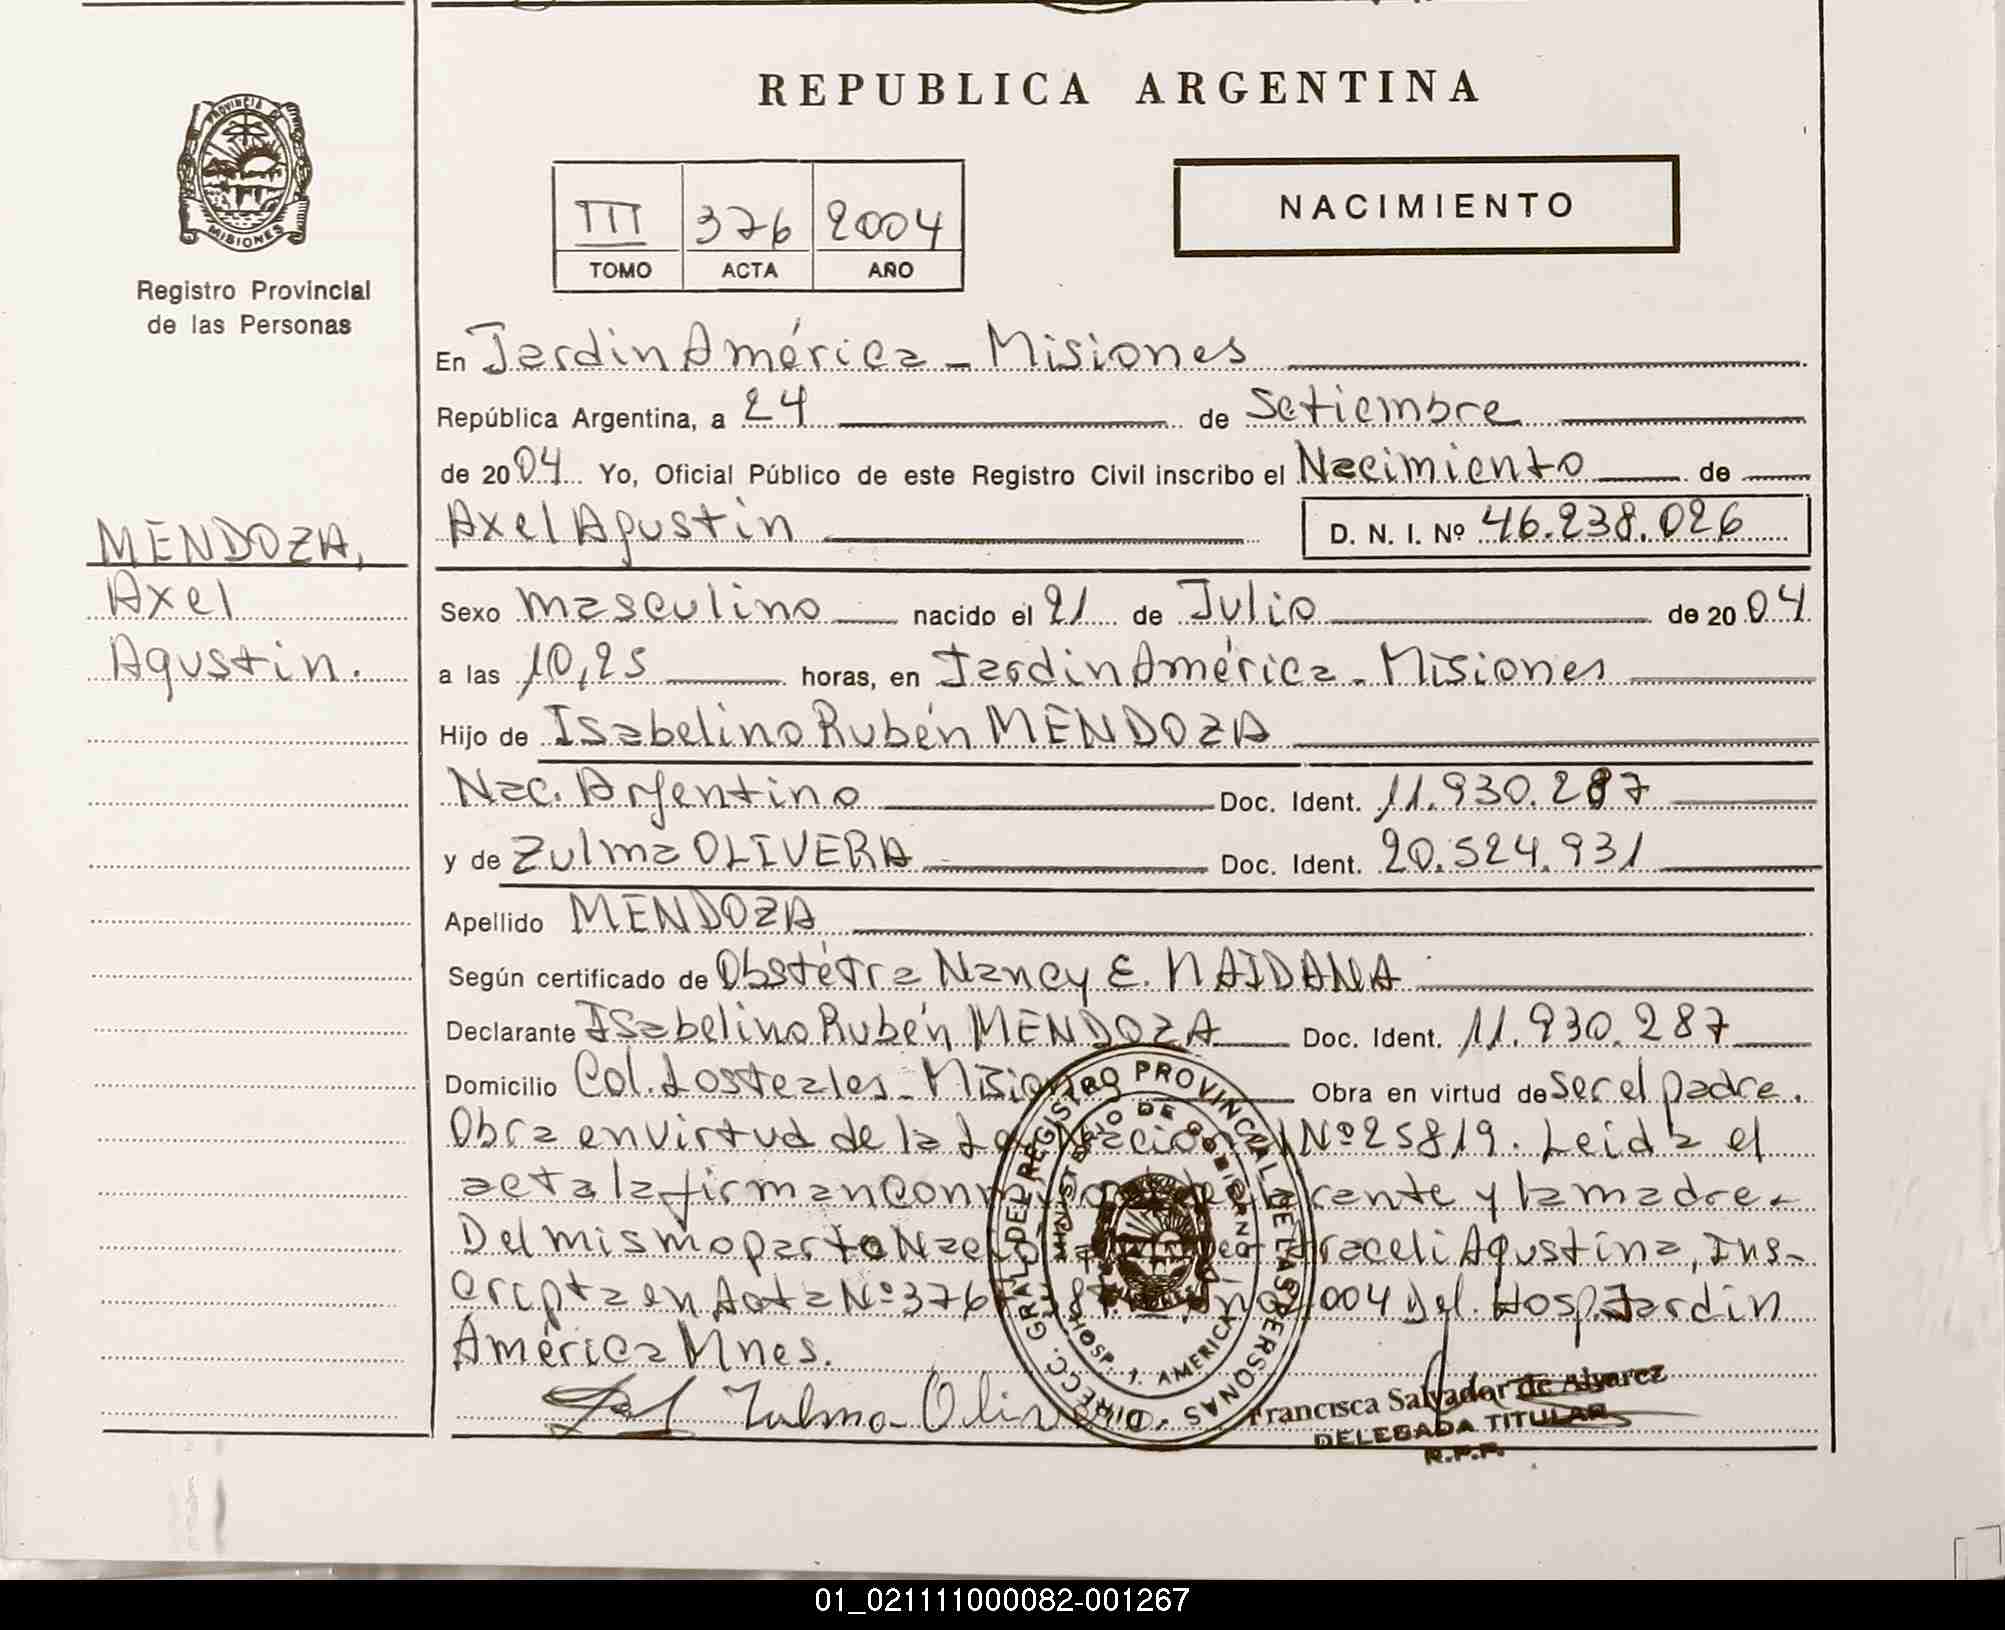 REPUBLICA ARGENTINA
PROVINCIA DE
MISIONES
Registro Provincial
de las Personas
III 376 2004
TOMO ACTA AÑO
NACIMIENTO
En Jardin América - Misiones
República Argentina, a 24 de Setiembre
de 2004 Yo, Oficial Público de este Registro Civil inscribo el Nacimiento de
Axel Agustin D. N. I. Nº 46.238.026
MENDOZA,
Axel
Agustin.
Sexo masculino nacido el 21 de Julio de 2004
a las 10,25 horas, en Jardin América - Misiones
Hijo de Isabelino Rubén MENDOZA
Nac. Argentino Doc. Ident. 11.930.287
y de Zulma OLIVERA Doc. Ident. 20.524.931
Apellido MENDOZA
Según certificado de Obstétra Nancy E. NAIDANA
Declarante Isabelino Rubén MENDOZA Doc. Ident. 11.930.287
Domicilio Col. Los teales - Obra en virtud de ser el padre.
Obra en virtud de la Nº 25819. Leida el
acta la firman con y la madre.
Del mismo parto Araceli Agustina, Ins-
cripta en Acta Nº 376 2004 Del. Hosp. Jardin
América Mnes.
Zulma
DIRECC. GRAL. DEL REGISTRO PROVINCIAL DE LAS PERSONAS
MINISTERIO DE GOBIERNO
HOSP. J. AMERICA
Francisca Salvador de Alvarez
DELEGADA TITULAR
R.P.P.
01_021111000082-001267